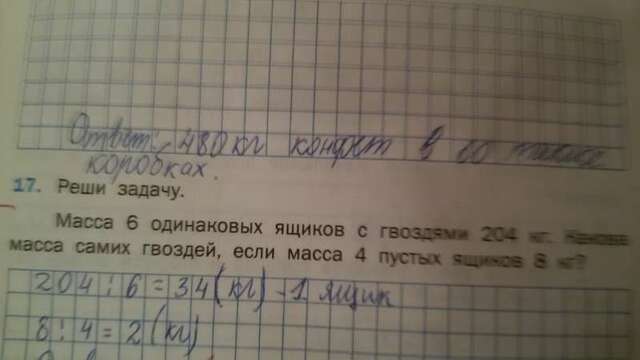 Ответ: 480 кг конфет в 60 таких
коробках.
17. Реши задачу.
Масса 6 одинаковых ящиков с гвоздями 204 кг. Какова
масса самих гвоздей, если масса 4 пустых ящиков 8 кг?
204 : 6 = 34 (кг) - 1 ящик
8 : 4 = 2 (кг)